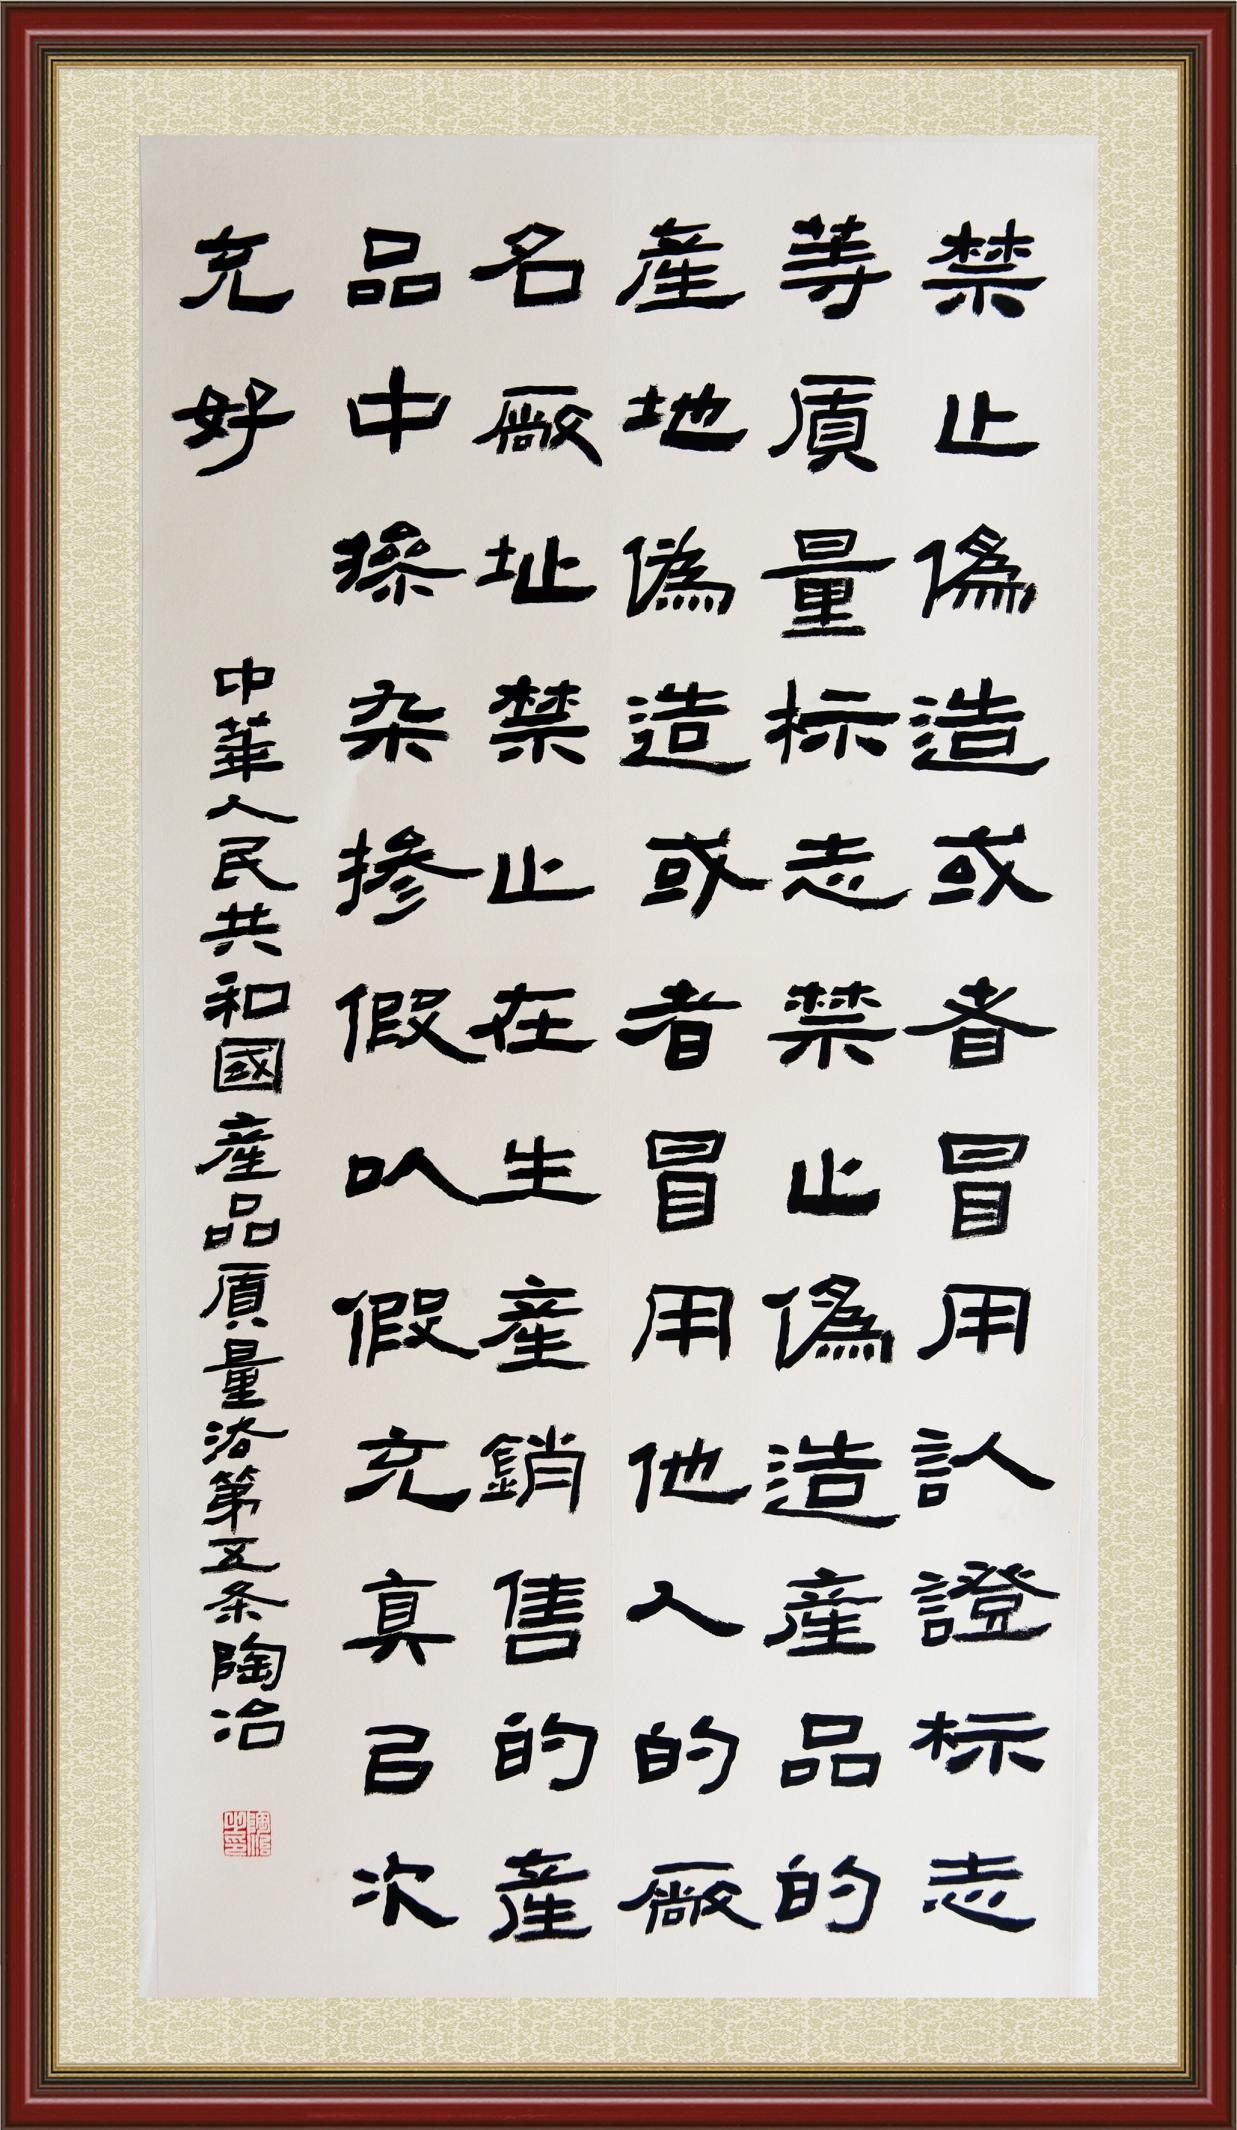 禁止僞造或者冒用认證标志
等貭量标志禁止僞造產品的
產地偽造或者冒用他人的廠
名廠址禁止在生產銷售的產
品中摻杂掺假㕥假充真㠯次
充好
中華人民共和國產品貭量法第五条陶冶
陶冶之印